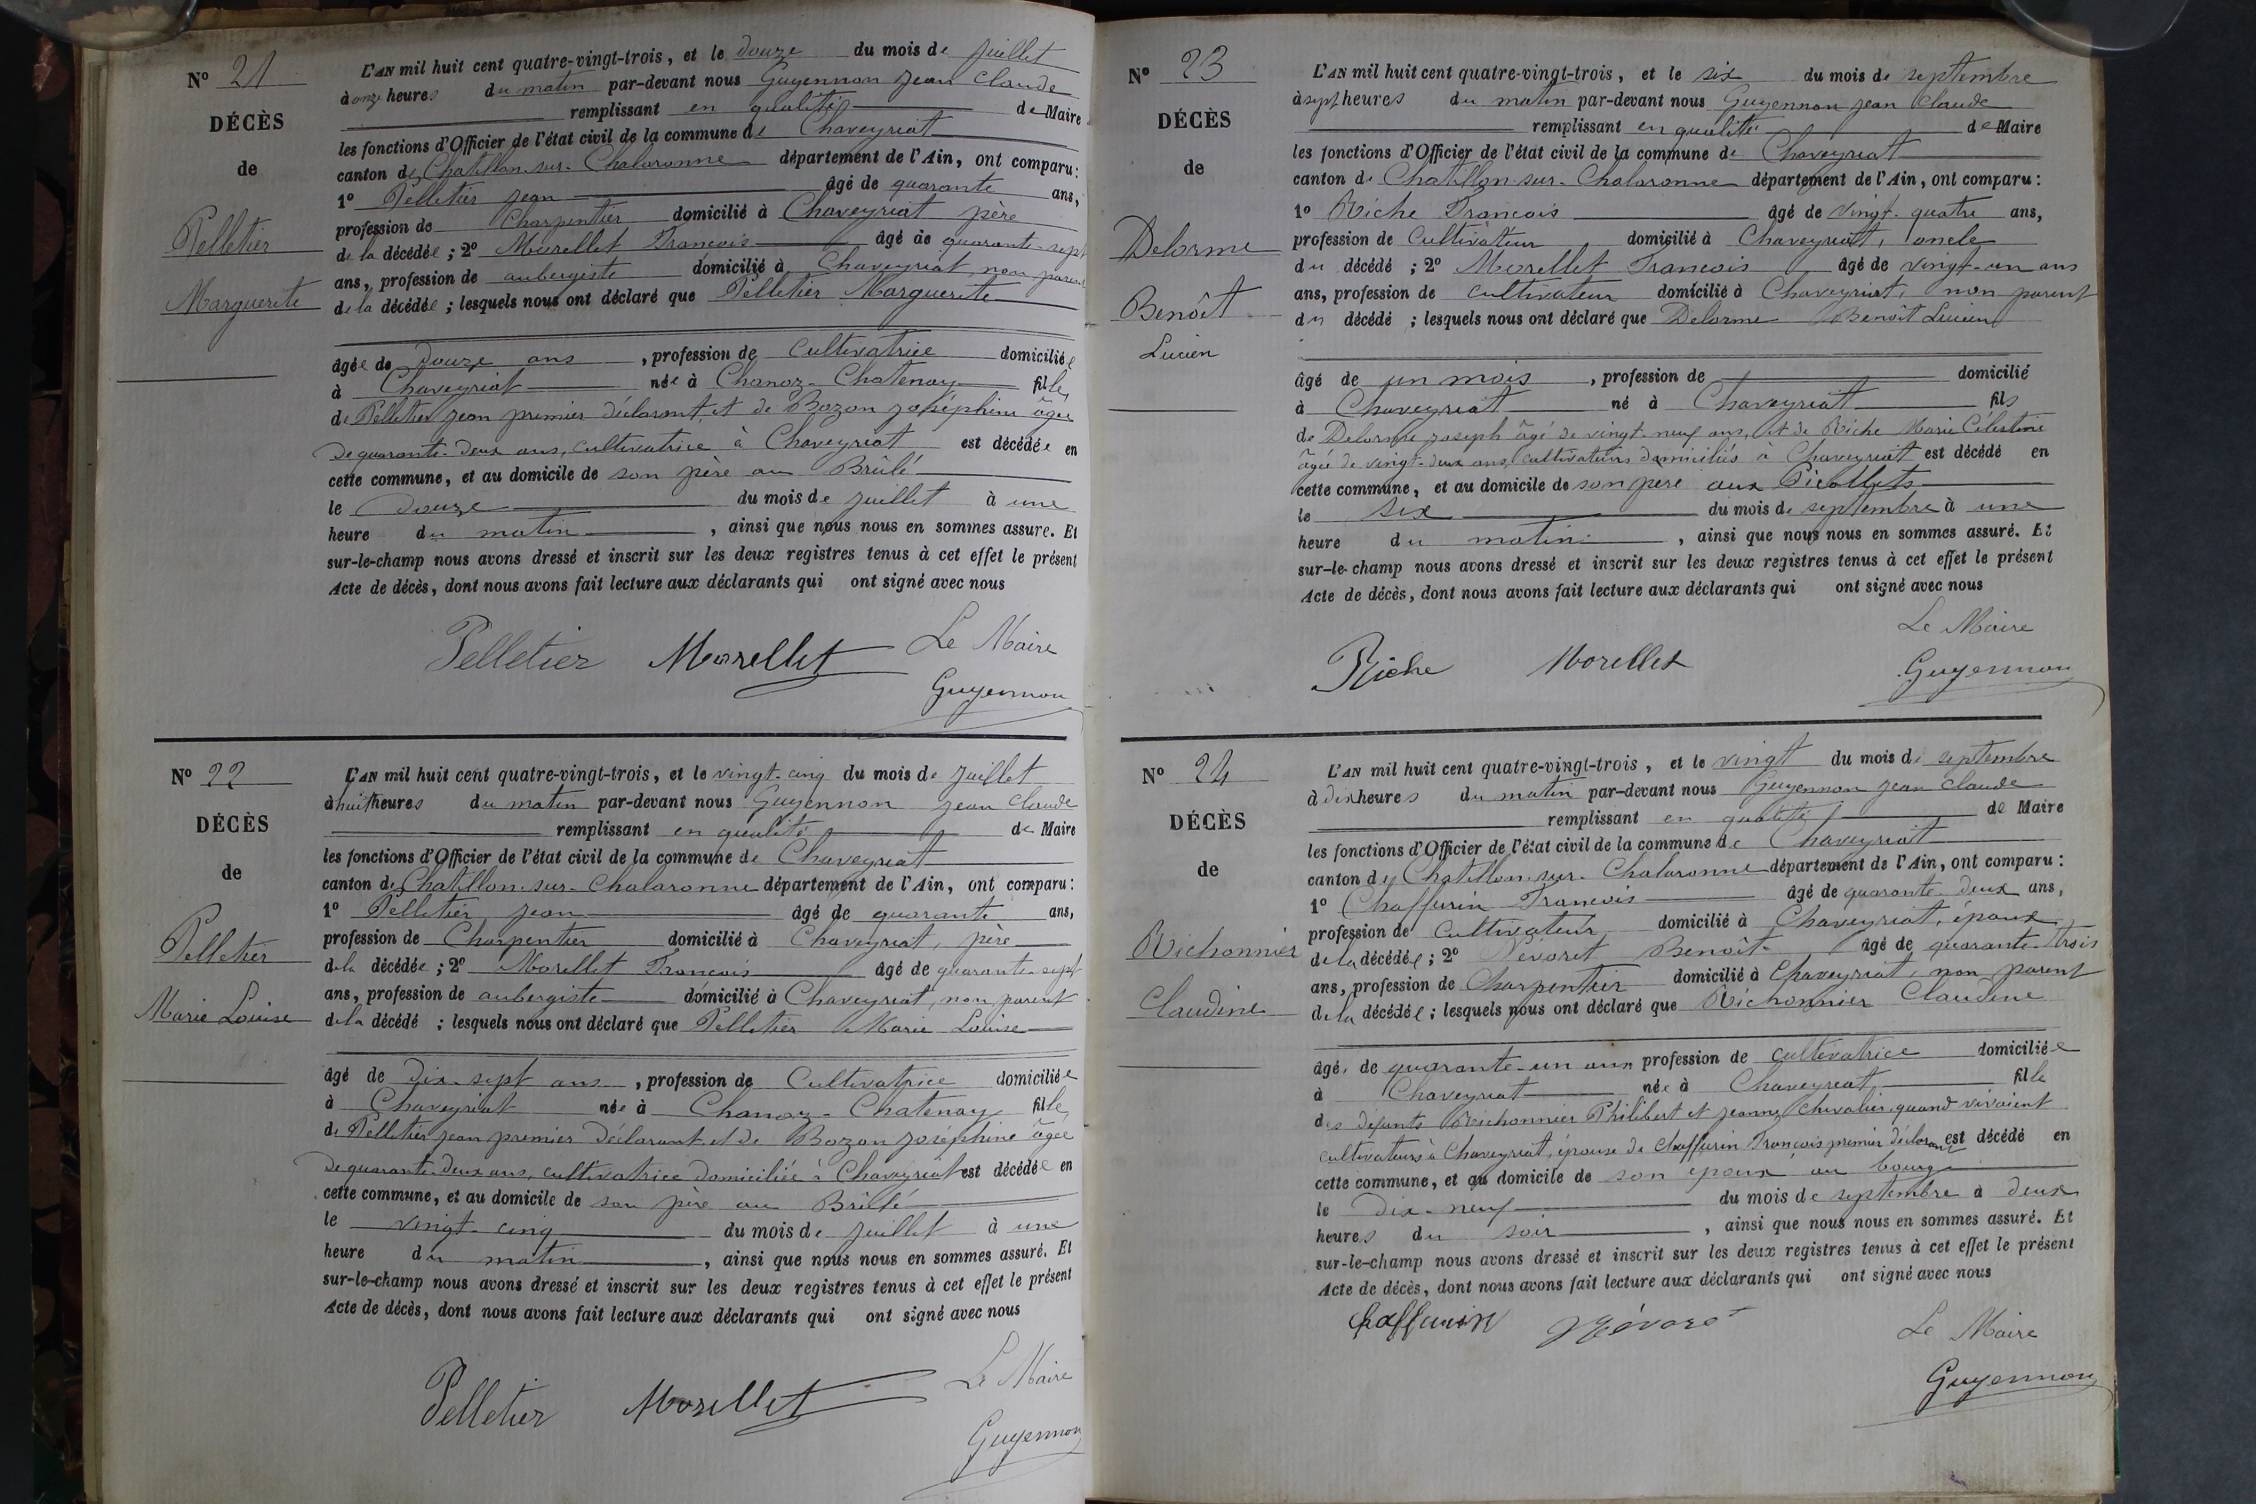 N° 21
DÉCÈS
de
Pelletier
Marguerite
L'AN mil huit cent quatre-vingt-trois, et le douze du mois de juillet
à onze heures du matin par-devant nous Guyennon Jean Claude
remplissant en qualité de Maire
les fonctions d'Officier de l'état civil de la commune de Chaveyriat
canton de Chatillon-sur-Chalaronne département de l'Ain, ont comparu:
1° Pelletier Jean âgé de quarante ans,
profession de Charpentier domicilié à Chaveyriat père
de la décédée; 2° Morellet Francois âgé de quarante-sept
ans, profession de aubergiste domicilié à Chaveyriat, non parent
de la décédée; lesquels nous ont déclaré que Pelletier Marguerite
âgée de douze ans, profession de cultivatrice domiciliée
à Chaveyriat née à Chanoz-Chatenay fille
de Pelletier Jean premier déclarant et de Bozon Joséphine âgée
de quarante-deux ans, cultivatrice à Chaveyriat est décédée en
cette commune, et au domicile de son père au Brûlé
le douze du mois de juillet à une
heure du matin, ainsi que nous nous en sommes assuré. Et
sur-le-champ nous avons dressé et inscrit sur les deux registres tenus à cet effet le présent
Acte de décès, dont nous avons fait lecture aux déclarants qui ont signé avec nous
Pelletier Morellet Le Maire
Guyennon
N° 22
DÉCÈS
de
Pelletier
Marie Louise
L'AN mil huit cent quatre-vingt-trois, et le vingt-cinq du mois de juillet
à huit heures du matin par-devant nous Guyennon Jean Claude
remplissant en qualité de Maire
les fonctions d'Officier de l'état civil de la commune de Chaveyriat
canton de Chatillon-sur-Chalaronne département de l'Ain, ont comparu:
1° Pelletier Jean âgé de quarante ans,
profession de Charpentier domicilié à Chaveyriat, père
de la décédée; 2° Morellet Francois âgé de quarante-sept
ans, profession de aubergiste domicilié à Chaveyriat, non parent
de la décédé; lesquels nous ont déclaré que Pelletier Marie Louise
âgé de dix-sept ans, profession de Cultivatrice domiciliée
à Chaveyriat née à Chanoz-Chatenay fille
de Pelletier Jean premier déclarant et de Bozon Joséphine âgée
de quarante-deux ans, cultivatrice domiciliée à Chaveyriat est décédée en
cette commune, et au domicile de son père au Brûlé
le vingt-cinq du mois de juillet à une
heure du matin, ainsi que nous nous en sommes assuré. Et
sur-le-champ nous avons dressé et inscrit sur les deux registres tenus à cet effet le présent
Acte de décès, dont nous avons fait lecture aux déclarants qui ont signé avec nous
Pelletier Morellet Le Maire
Guyennon
N° 23
DÉCÈS
de
Delorme
Benoît
Lucien
L'AN mil huit cent quatre-vingt-trois, et le six du mois de septembre
à sept heures du matin par-devant nous Guyennon Jean Claude
remplissant en qualité de Maire
les fonctions d'Officier de l'état civil de la commune de Chaveyriat
canton de Chatillon-sur-Chalaronne département de l'Ain, ont comparu:
1° Riche Francois âgé de vingt-quatre ans,
profession de Cultivateur domicilié à Chaveyriat, oncle
du décédé; 2° Morellet Francois âgé de vingt-un ans
ans, profession de cultivateur domicilié à Chaveyriat, non parent
du décédé; lesquels nous ont déclaré que Delorme Benoît Lucien
âgé de un mois, profession de domicilié
à Chaveyriat né à Chaveyriat fils
de Delorme Joseph âgé de vingt-neuf ans, et de Riche Marie Célestine
âgée de vingt-deux ans, cultivateurs domiciliés à Chaveyriat est décédé en
cette commune, et au domicile de son père aux Picollets
le six du mois de septembre à une
heure du matin, ainsi que nous nous en sommes assuré. Et
sur-le-champ nous avons dressé et inscrit sur les deux registres tenus à cet effet le présent
Acte de décès, dont nous avons fait lecture aux déclarants qui ont signé avec nous
Le Maire
Riche Morellet Guyennon
N° 24
DÉCÈS
de
Richonnier
Claudine
L'AN mil huit cent quatre-vingt-trois, et le vingt du mois de septembre
à dix heures du matin par-devant nous Guyennon Jean Claude
remplissant en qualité de Maire
les fonctions d'Officier de l'état civil de la commune de Chaveyriat
canton de Chatillon-sur-Chalaronne département de l'Ain, ont comparu:
1° Chaffurin Francois âgé de quarante-deux ans,
profession de Cultivateur domicilié à Chaveyriat, époux
de la décédée; 2° Névoret Benoît âgé de quarante-trois
ans, profession de Charpentier domicilié à Chaveyriat, non parent
de la décédée; lesquels nous ont déclaré que Richonnier Claudine
âgé de quarante-un ans profession de cultivatrice domiciliée
à Chaveyriat née à Chaveyriat, fille
des défunts Richonnier Philibert et Jeanne Chevalier quand vivaient
cultivateurs à Chaveyriat, épouse de Chaffurin Francois premier déclarant est décédé en
cette commune, et au domicile de son époux au bourg
le dix-neuf du mois de septembre à deux
heures du soir, ainsi que nous nous en sommes assuré. Et
sur-le-champ nous avons dressé et inscrit sur les deux registres tenus à cet effet le présent
Acte de décès, dont nous avons fait lecture aux déclarants qui ont signé avec nous
Chaffurin Névoret Le Maire
Guyennon